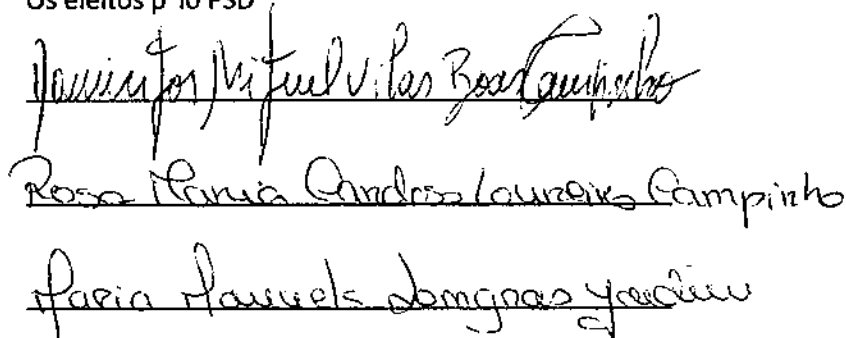 Os eleitos p lo PSD
Domingos Miguel Vilas Boas Campinho
Rosa Maria Cardoso Loureiro Campinho
Maria Manuela Longras Jardim